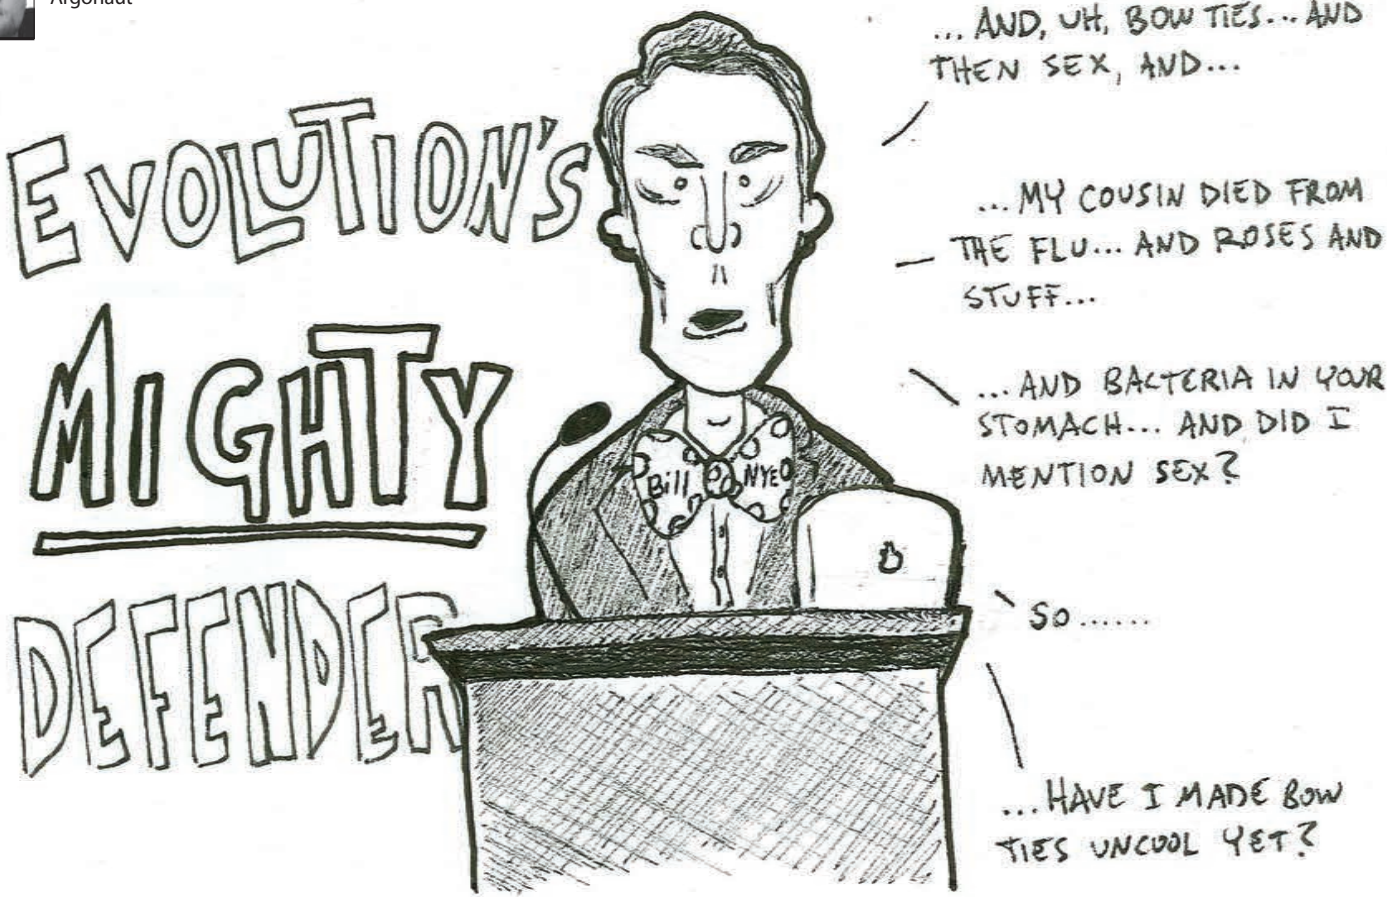 Argonaut
EVOLUTION'S
MIGHTY
DEFENDER
... AND, UH, BOW TIES... AND
THEN SEX, AND...
...MY COUSIN DIED FROM
THE FLU... AND ROSES AND
STUFF...
...AND BACTERIA IN YOUR
STOMACH... AND DID I
MENTION SEX?
Bill NYE
SO......
...HAVE I MADE BOW
TIES UNCOOL YET?